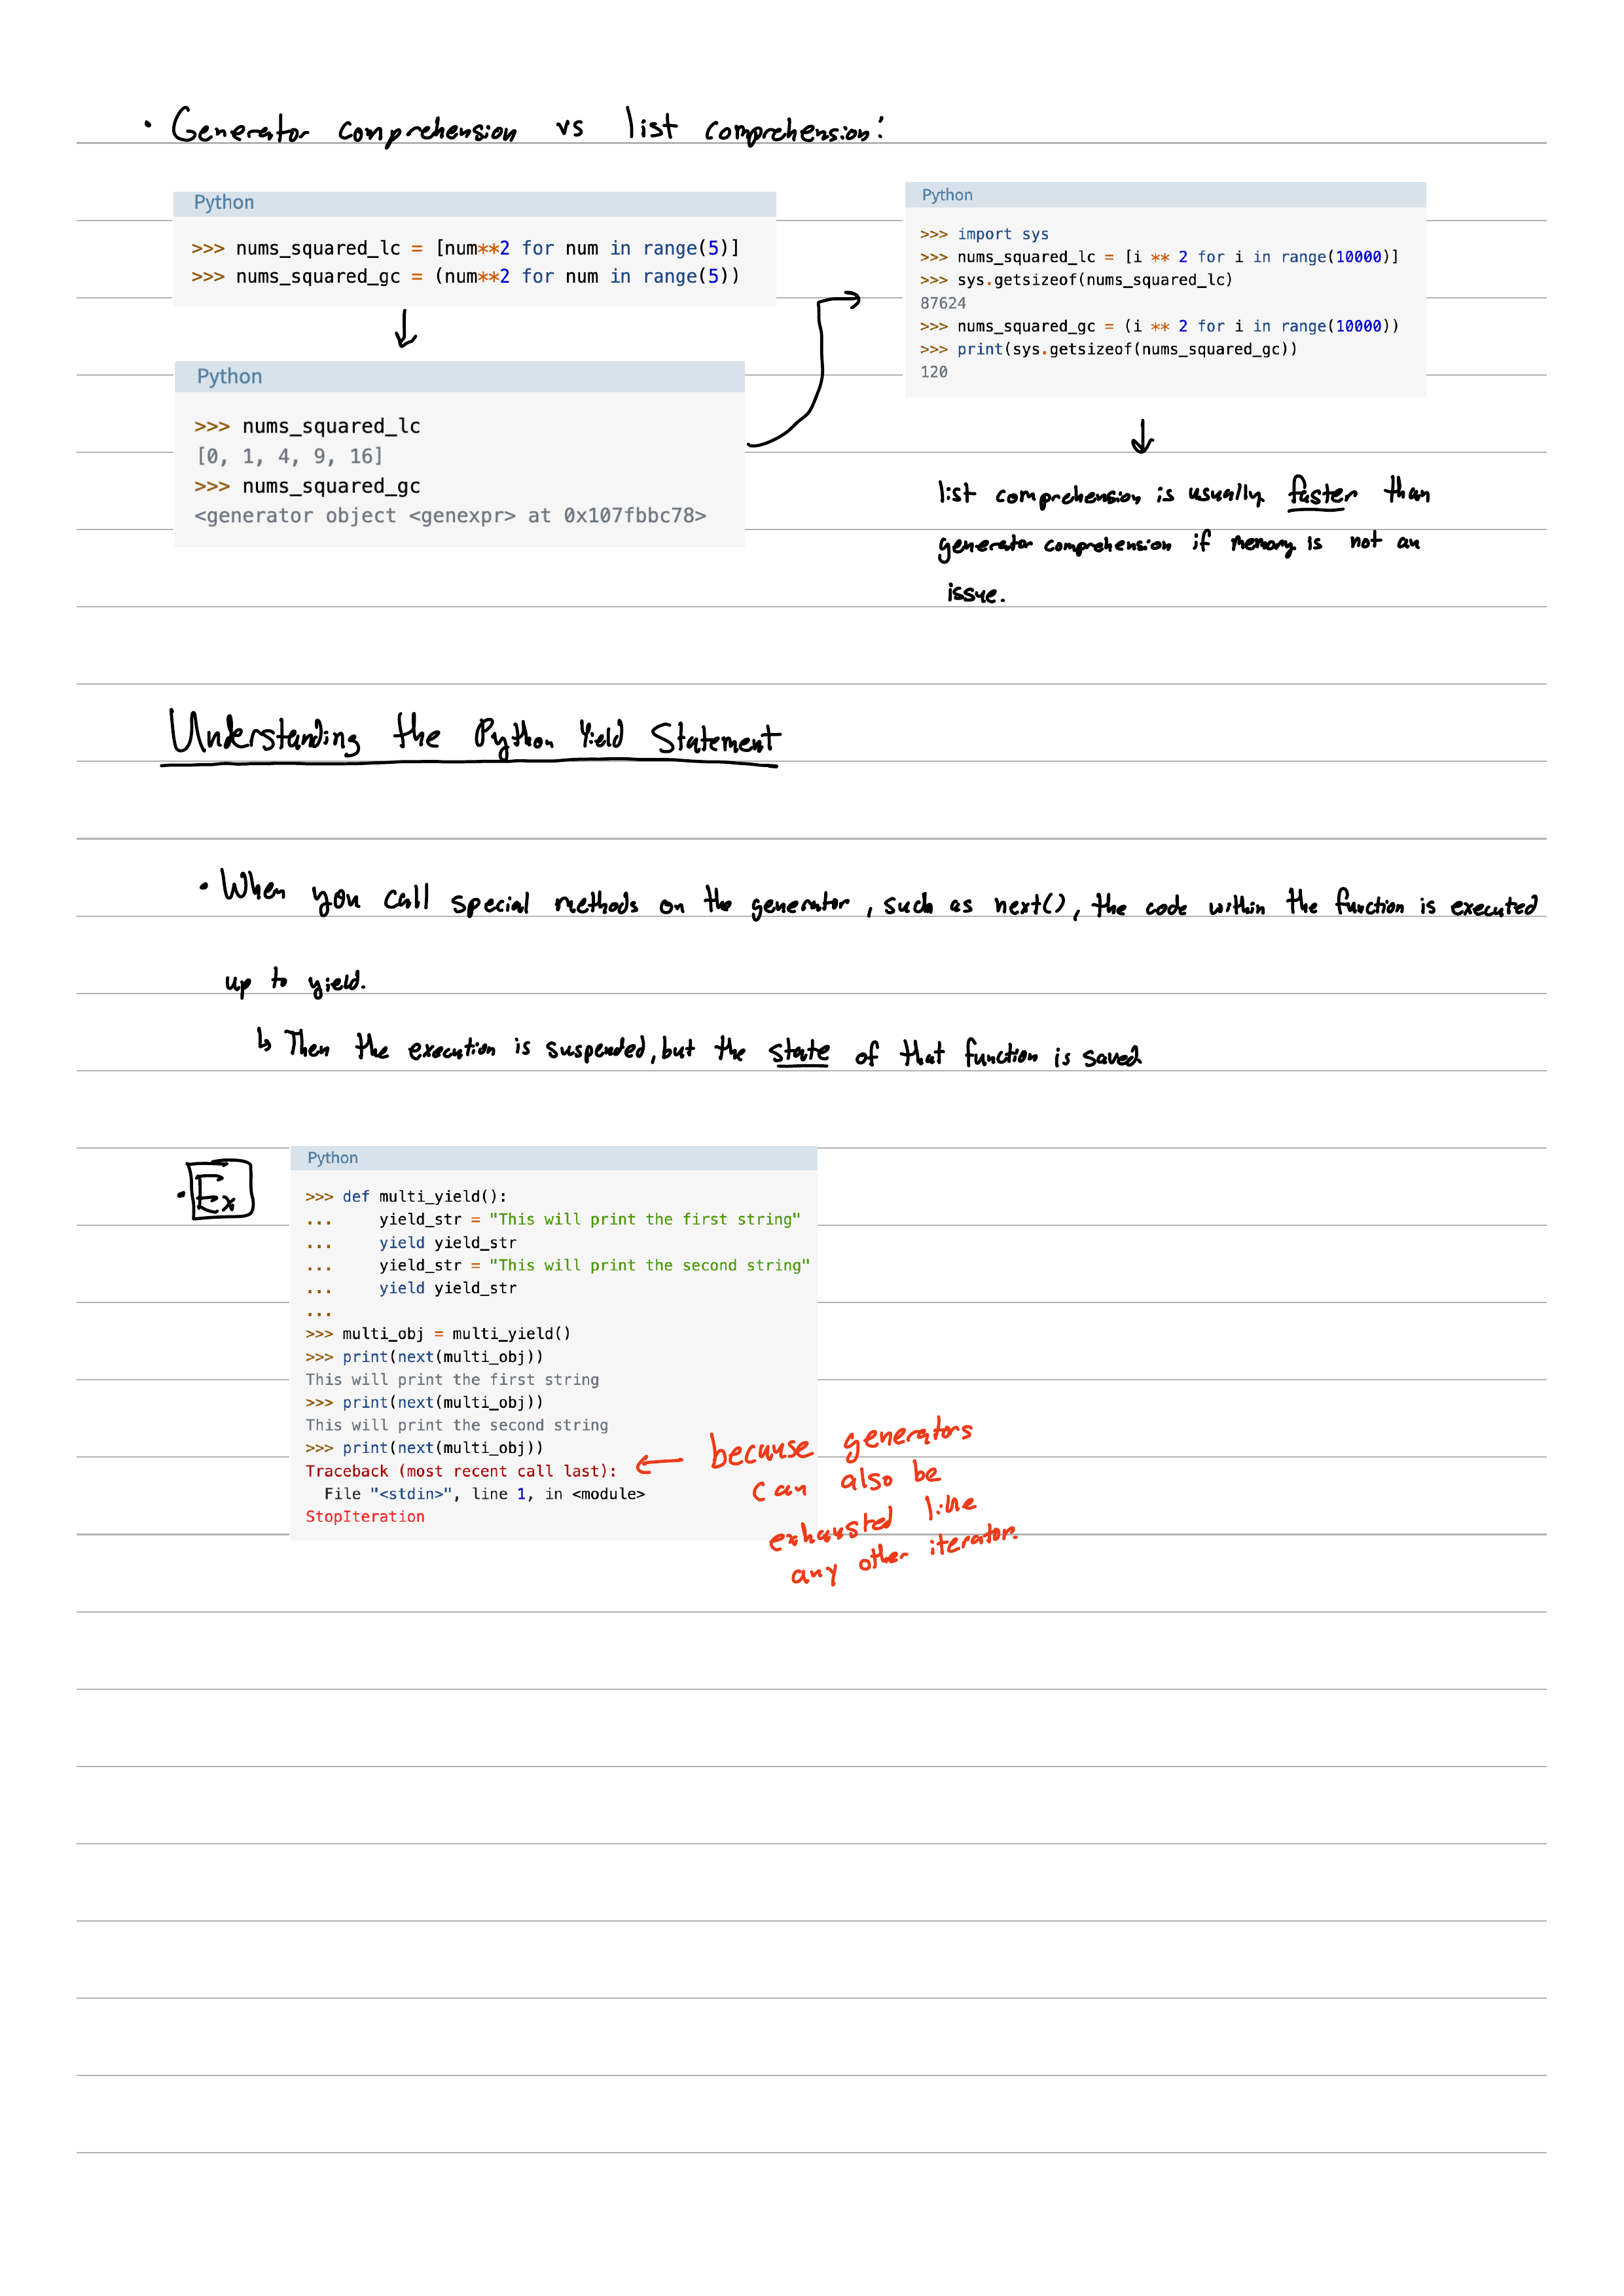 • Generator comprehension vs list comprehension:
Python
>>> nums_squared_lc = [num**2 for num in range(5)]
>>> nums_squared_gc = (num**2 for num in range(5))
Python
>>> nums_squared_lc
[0, 1, 4, 9, 16]
>>> nums_squared_gc
<generator object <genexpr> at 0x107fbbc78>
Python
>>> import sys
>>> nums_squared_lc = [i ** 2 for i in range(10000)]
>>> sys.getsizeof(nums_squared_lc)
87624
>>> nums_squared_gc = (i ** 2 for i in range(10000))
>>> print(sys.getsizeof(nums_squared_gc))
120
list comprehension is usually faster than
generator comprehension if memory is not an
issue.
Understanding the Python Yield Statement
• When you call special methods on the generator, such as next(), the code within the function is executed
up to yield.
↳ Then the execution is suspended, but the state of that function is saved
• Ex
Python
>>> def multi_yield():
...     yield_str = "This will print the first string"
...     yield yield_str
...     yield_str = "This will print the second string"
...     yield yield_str
...
>>> multi_obj = multi_yield()
>>> print(next(multi_obj))
This will print the first string
>>> print(next(multi_obj))
This will print the second string
>>> print(next(multi_obj))
Traceback (most recent call last):
  File "<stdin>", line 1, in <module>
StopIteration
← because generators
can also be
exhausted like
any other iterator.